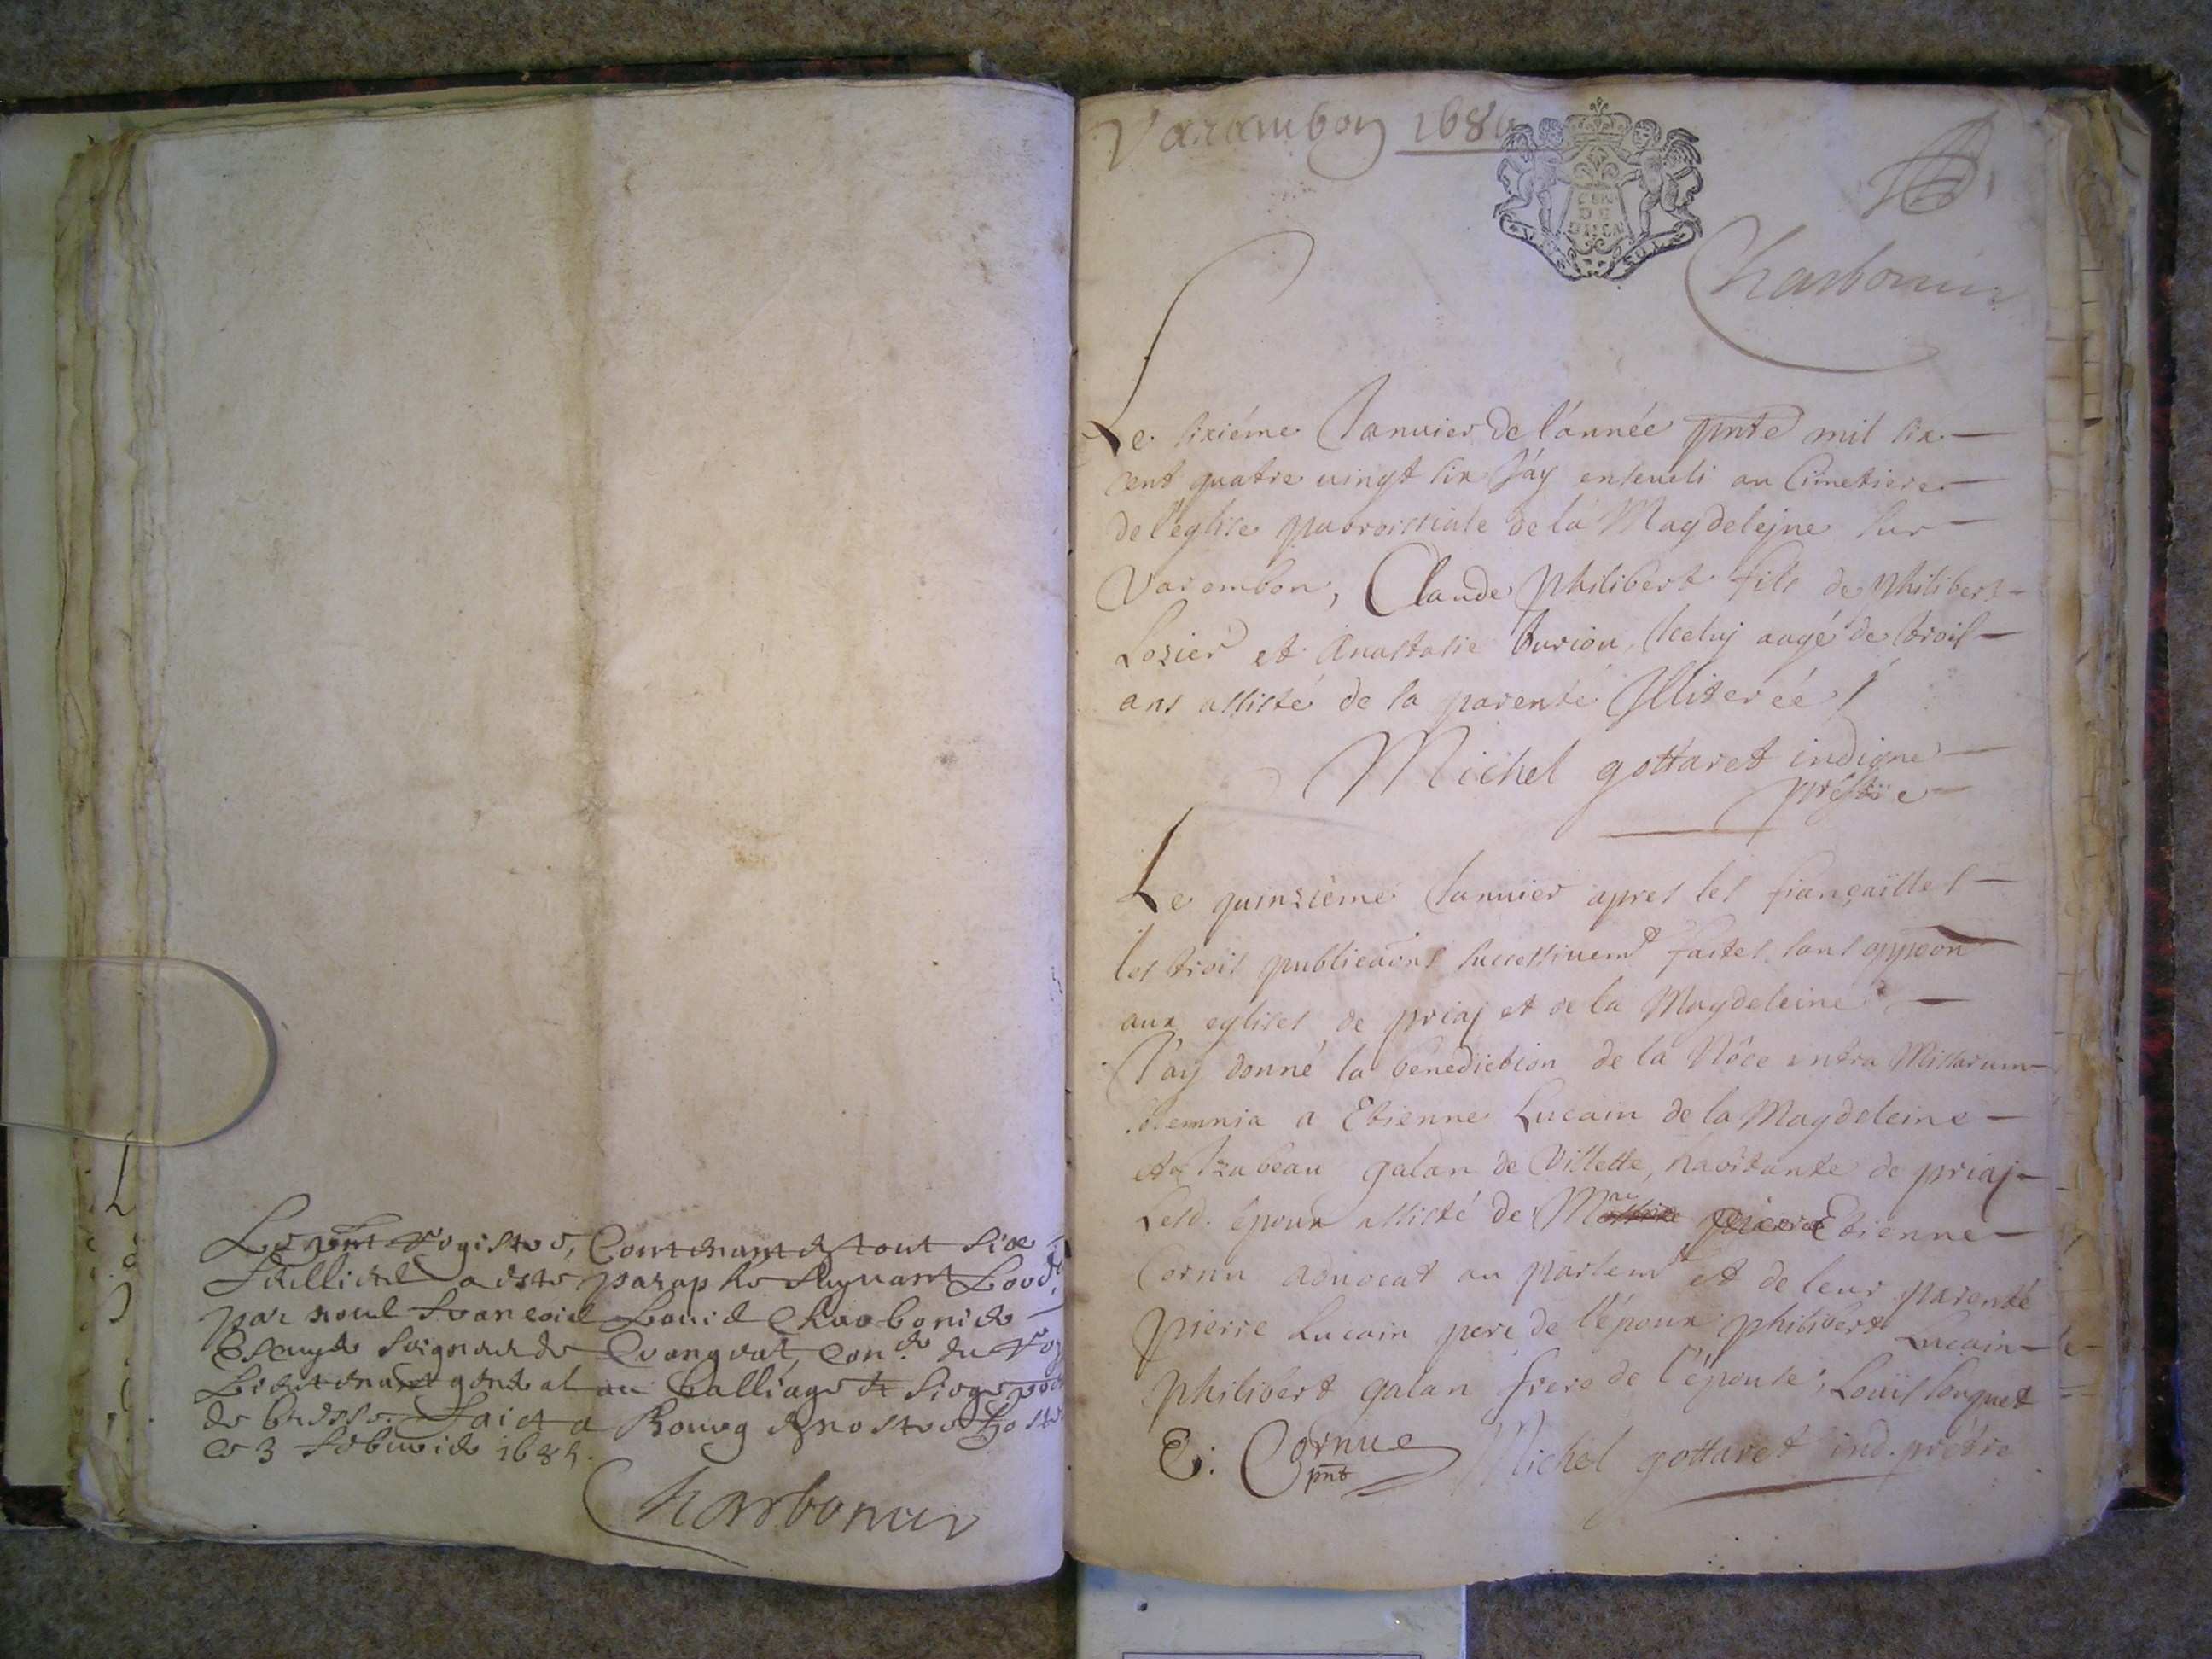 Le pnt registre, Contenant tout six
feuillets a esté paraphé suyvant Lord.
par nous francois Louis Charbonier
Escuyer seigneur de Crangeat, Con.er du Roy
Lieutenant general au balliage et siege
de bresse. Faict a Bourg en nostre hostel
ce 3 febvrier 1685.
Charbonier
Varambon 168
GEN DE
Charbonier
Le sixiéme Janvier de l'année pnte mil six
cent quatre vingt six J'ay enseveli au Cimetiere
de l'eglise parroissiale de la Magdelejne sur
Varembon, Claude philibert fils de philibert
Lozier et Anastasie burion, Iceluj aagé de trois
ans assisté de la parenté Illiterée /
Michel gottaret indigne
prestre
Le quinzième Janvier apres les fiançailles
les trois publicaons successivemt faites sans opp̃on
aux eglises de priaj et de la Magdeleine
J'ay donné la benediction de la Nôce intra Missarum
solemnia a Etienne Lucain de la Magdeleine
et a Izabeau galan de Villette, havitante de priaj
Lesd. époux assisté de Mre Etienne
Cornu advocat au parlemt et de leur parenté
pierre Lucain pere de l'époux philibert Lucain
philibert galan frere de l'épouse, Louis souquet
E: Cornue
pnt
Michel gottaret ind. prêtre